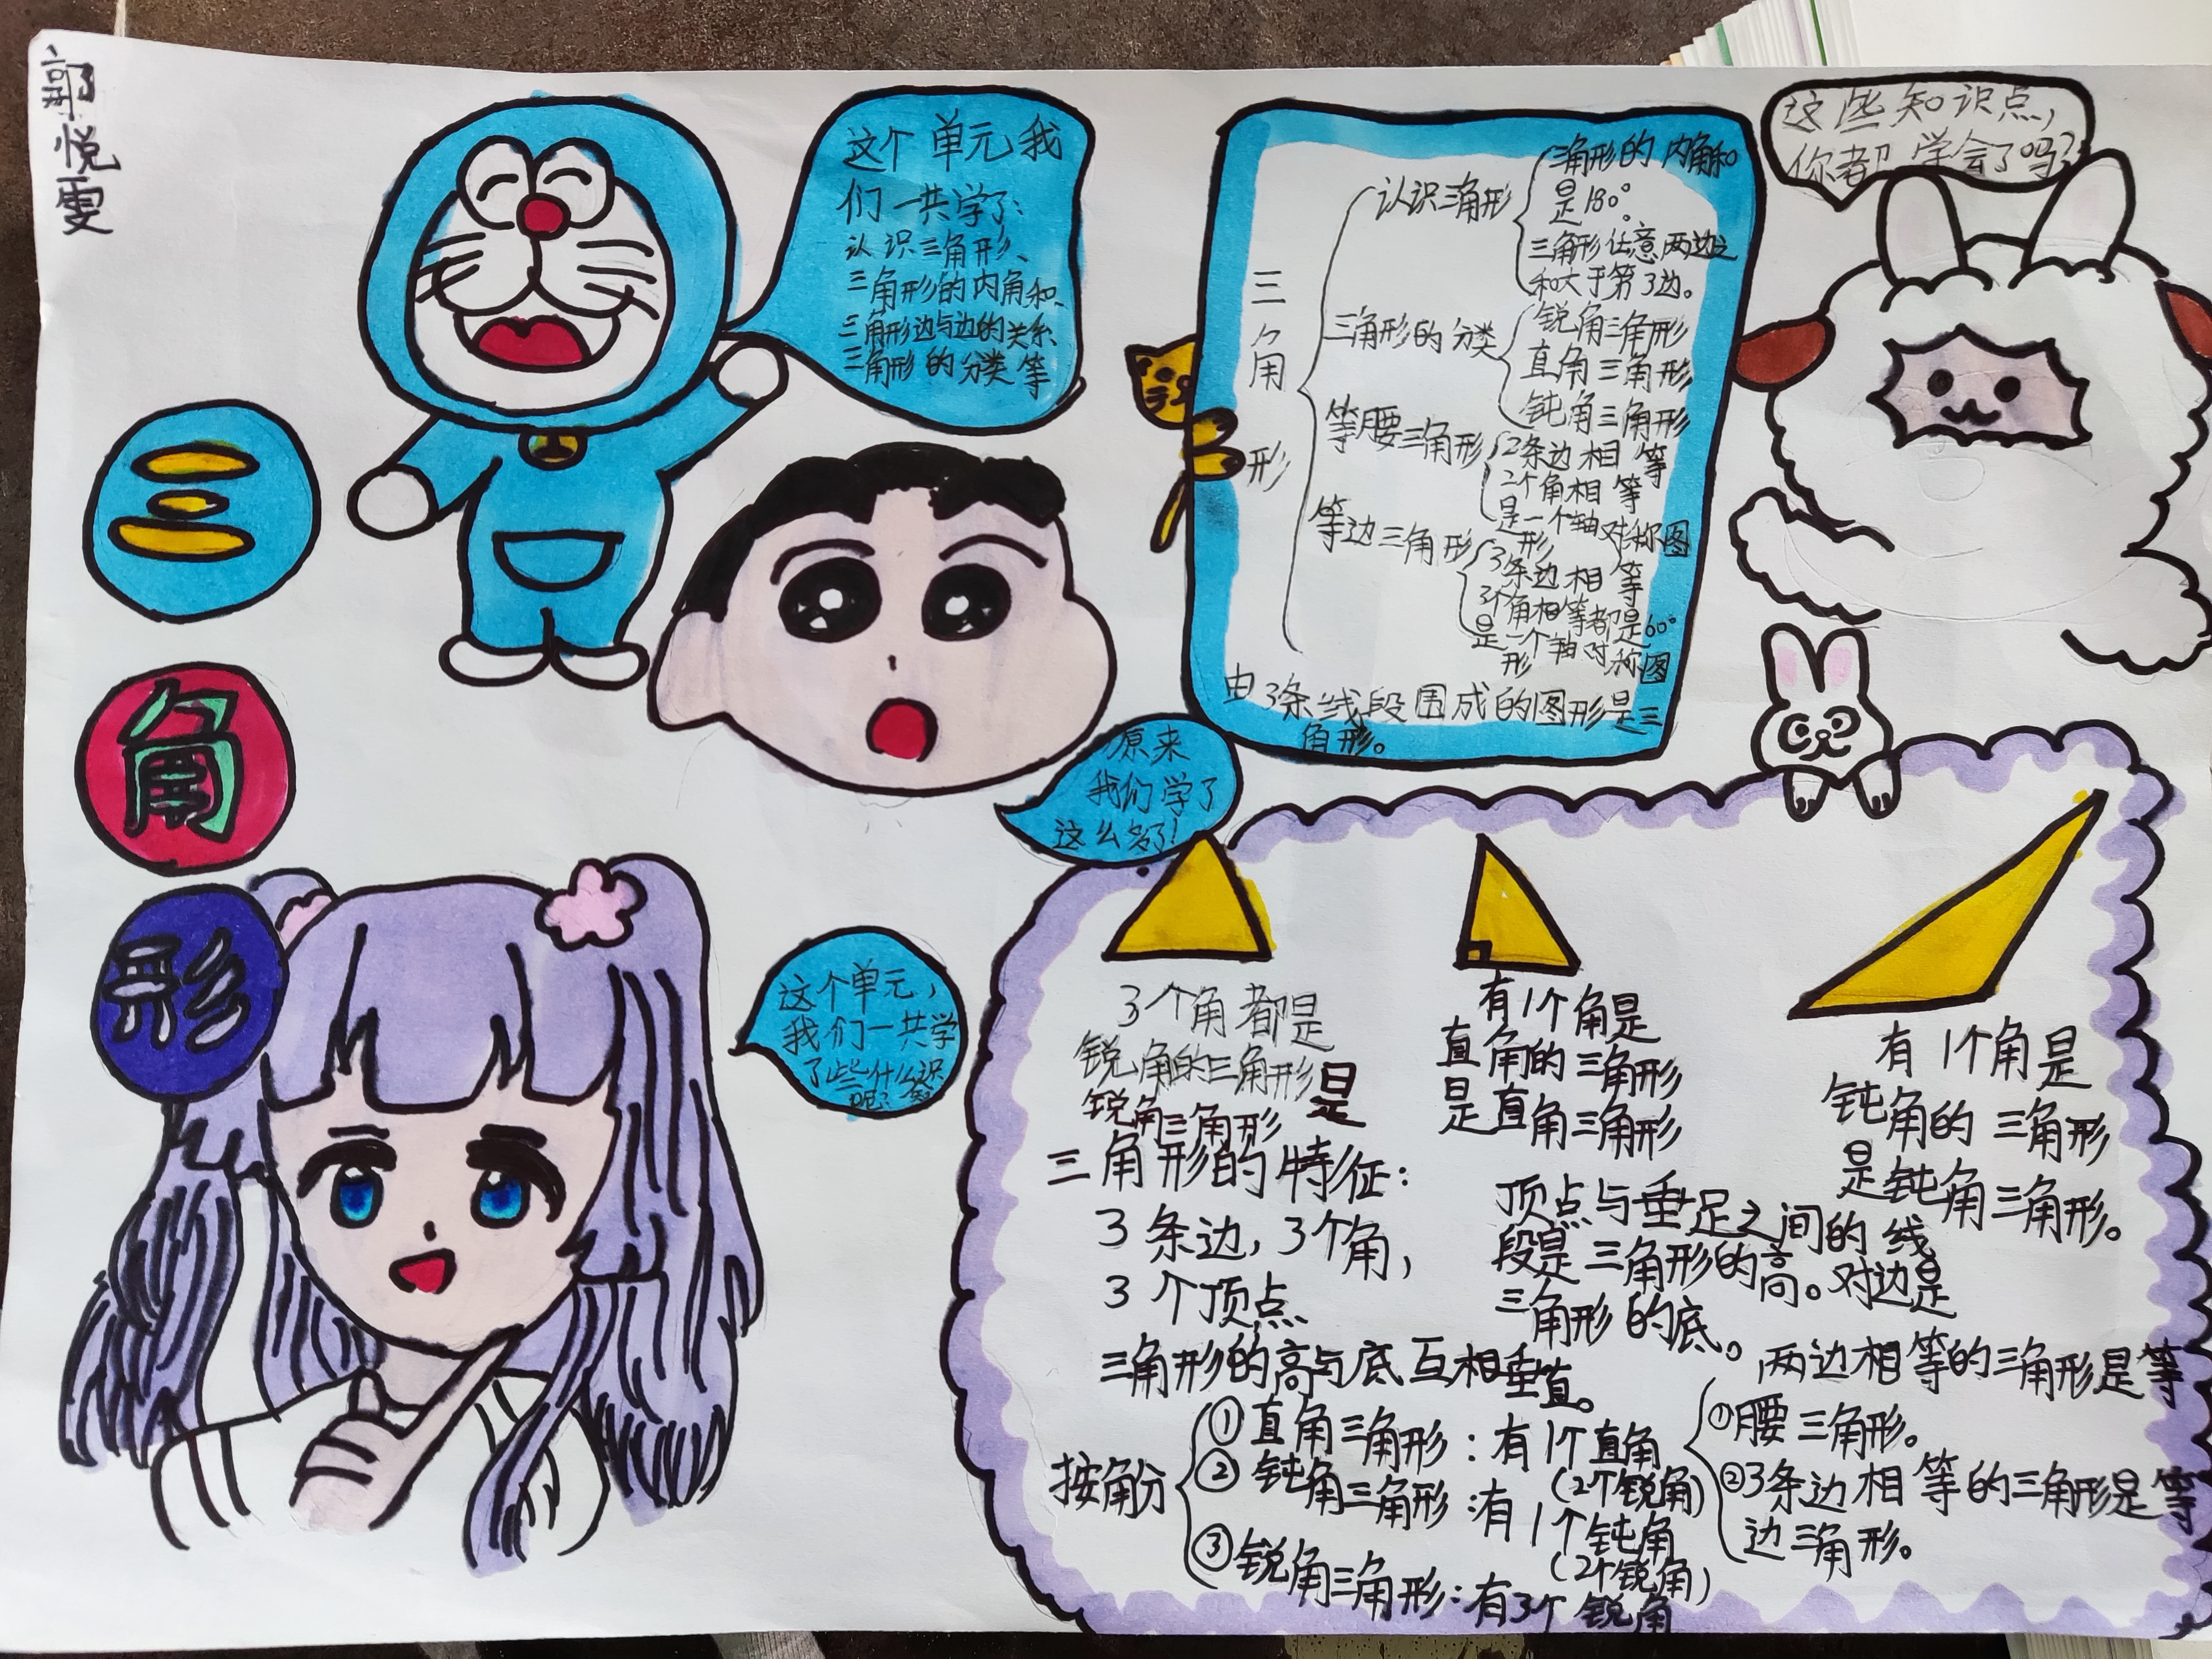 郭悦雯
三
角
形
这个单元我
们一共学了:
认识三角形、
三角形的内角和、
三角形边与边的关系、
三角形的分类等
原来
我们学了
这么多了!
这个单元,
我们一共学
了些什么识
呢? 知
三角形
认识三角形
三角形的内角和
是180°。
三角形任意两边之
和大于第3边。
三角形的分类
锐角三角形
直角三角形
钝角三角形
等腰三角形
2条边相等
2个角相等
是一个轴对称图
形
等边三角形
3条边相等
3个角相等都是60°
是一个轴对称图
形
由3条线段围成的图形是三
角形。
这些知识点,
你都学会了吗?
3个角都是
锐角的三角形是
锐角三角形
有1个角是
直角的三角形
是直角三角形
有1个角是
钝角的三角形
是钝角三角形。
三角形的特征:
3条边,3个角,
3个顶点
顶点与垂足之间的线
段是三角形的高。对边是
三角形的底。
三角形的高与底互相垂直。
按角分
①直角三角形:有1个直角
(2个锐角)
②钝角三角形:有1个钝角
(2个锐角)
③锐角三角形:有3个锐角
两边相等的三角形是等
①腰三角形。
②3条边相等的三角形是等
边三角形。